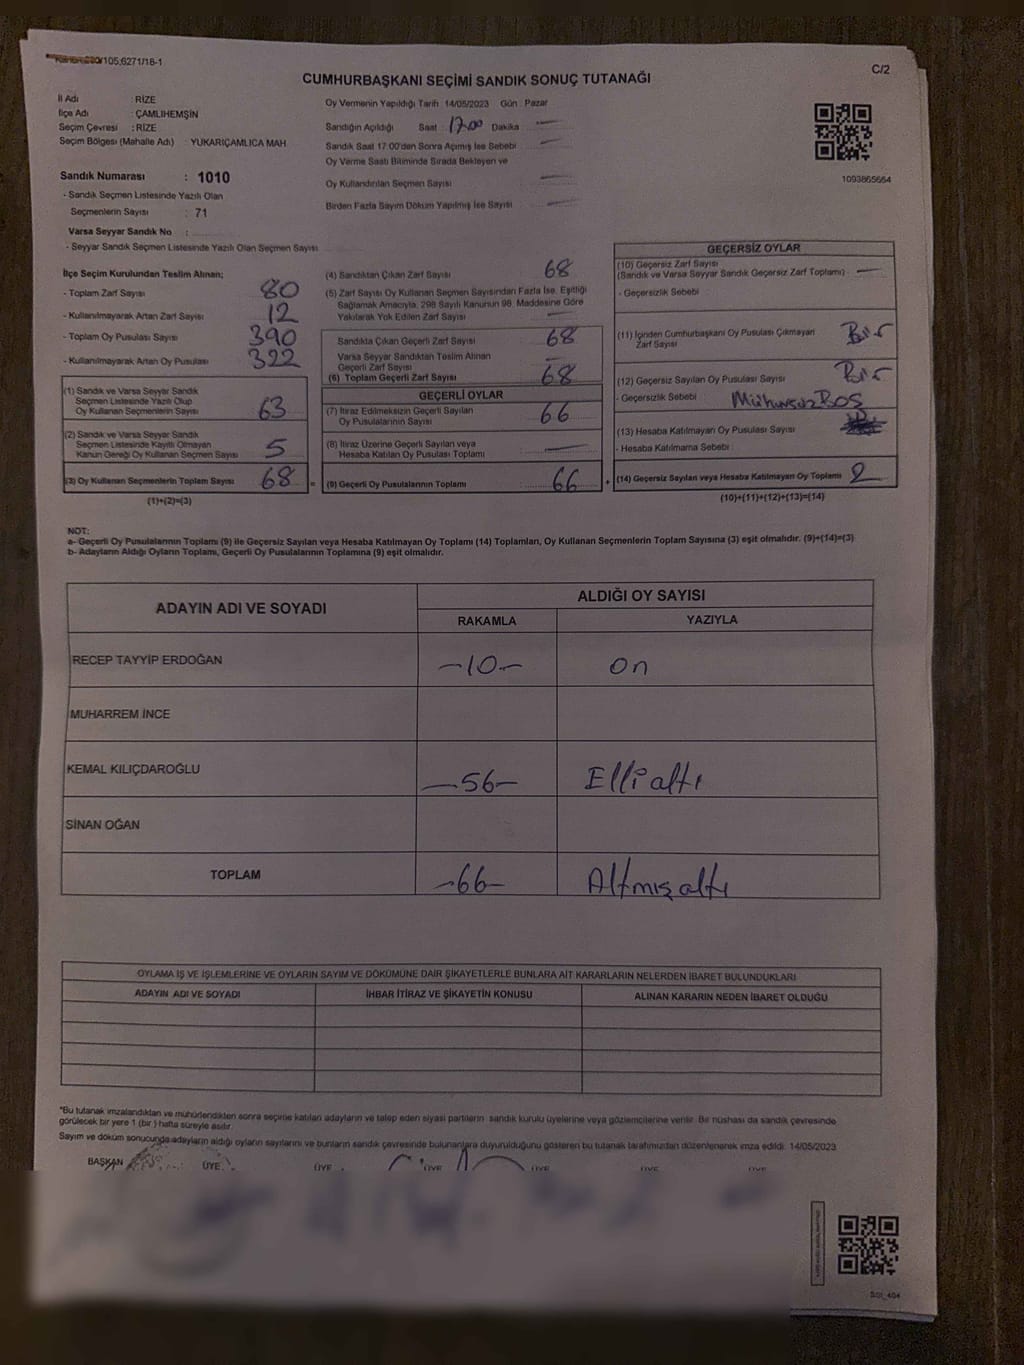 105;6271/18-1
C/2
CUMHURBAŞKANI SEÇİMİ SANDIK SONUÇ TUTANAĞI
İl Adı : RİZE
İlçe Adı : ÇAMLIHEMŞİN
Seçim Çevresi : RİZE
Seçim Bölgesi (Mahalle Adı) : YUKARIÇAMLICA MAH
Sandık Numarası : 1010
- Sandık Seçmen Listesinde Yazılı Olan
Seçmenlerin Sayısı : 71
Varsa Seyyar Sandık No :
- Seyyar Sandık Seçmen Listesinde Yazılı Olan Seçmen Sayısı
Oy Vermenin Yapıldığı Tarih 14/05/2023 Gün : Pazar
Sandığın Açıldığı Saat 17.00 Dakika —
Sandık Saat 17:00'den Sonra Açımış İse Sebebi —
Oy Verme Saati Bitiminde Sırada Bekleyen ve
Oy Kullandırılan Seçmen Sayısı —
Birden Fazla Sayım Döküm Yapılmış İse Sayısı —
1093865664
İlçe Seçim Kurulundan Teslim Alınan;
- Toplam Zarf Sayısı 80
- Kullanılmayarak Artan Zarf Sayısı 12
- Toplam Oy Pusulası Sayısı 390
- Kullanılmayarak Artan Oy Pusulası 322
(1) Sandık ve Varsa Seyyar Sandık
Seçmen Listesinde Yazılı Olup
Oy Kullanan Seçmenlerin Sayısı 63
(2) Sandık ve Varsa Seyyar Sandık
Seçmen Listesinde Kayıtlı Olmayan
Kanun Gereği Oy Kullanan Seçmen Sayısı 5
(3) Oy Kullanan Seçmenlerin Toplam Sayısı 68 =
(1)+(2)=(3)
(4) Sandıktan Çıkan Zarf Sayısı 68
(5) Zarf Sayısı Oy Kullanan Seçmen Sayısından Fazla İse, Eşitliği
Sağlamak Amacıyla, 298 Sayılı Kanunun 98. Maddesine Göre
Yakılarak Yok Edilen Zarf Sayısı —
Sandıkta Çıkan Geçerli Zarf Sayısı 68
Varsa Seyyar Sandıktan Teslim Alınan
Geçerli Zarf Sayısı —
(6) Toplam Geçerli Zarf Sayısı 68
GEÇERLİ OYLAR
(7) İtiraz Edilmeksizin Geçerli Sayılan
Oy Pusulalarının Sayısı 66
(8) İtiraz Üzerine Geçerli Sayılan veya
Hesaba Katılan Oy Pusulası Toplamı —
(9) Geçerli Oy Pusulalarının Toplamı 66 +
GEÇERSİZ OYLAR
(10) Geçersiz Zarf Sayısı
(Sandık ve Varsa Seyyar Sandık Geçersiz Zarf Toplamı) —
- Geçersizlik Sebebi :
(11) İçinden Cumhurbaşkanı Oy Pusulası Çıkmayan
Zarf Sayısı Bir
(12) Geçersiz Sayılan Oy Pusulası Sayısı Bir
- Geçersizlik Sebebi : Mühürsüz BOŞ
(13) Hesaba Katılmayan Oy Pusulası Sayısı
- Hesaba Katılmama Sebebi :
(14) Geçersiz Sayılan veya Hesaba Katılmayan Oy Toplamı 2
(10)+(11)+(12)+(13)=(14)
NOT:
a- Geçerli Oy Pusulalarının Toplamı (9) ile Geçersiz Sayılan veya Hesaba Katılmayan Oy Toplamı (14) Toplamları, Oy Kullanan Seçmenlerin Toplam Sayısına (3) eşit olmalıdır. (9)+(14)=(3)
b- Adayların Aldığı Oyların Toplamı, Geçerli Oy Pusulalarının Toplamına (9) eşit olmalıdır.
ADAYIN ADI VE SOYADI ALDIĞI OY SAYISI
RAKAMLA YAZIYLA
RECEP TAYYİP ERDOĞAN —10— on
MUHARREM İNCE
KEMAL KILIÇDAROĞLU —56— Elli altı
SİNAN OĞAN
TOPLAM —66— Altmış altı
OYLAMA İŞ VE İŞLEMLERİNE VE OYLARIN SAYIM VE DÖKÜMÜNE DAİR ŞİKAYETLERLE BUNLARA AİT KARARLARIN NELERDEN İBARET BULUNDUKLARI
ADAYIN ADI VE SOYADI İHBAR İTİRAZ VE ŞİKAYETİN KONUSU ALINAN KARARIN NEDEN İBARET OLDUĞU
*Bu tutanak imzalandıktan ve mühürlendikten sonra seçime katılan adayların ve talep eden siyasi partilerin sandık kurulu üyelerine veya gözlemcilerine verilir. Bir nüshası da sandık çevresinde
görülecek bir yere 1 (bir ) hafta süreyle asılır.
Sayım ve döküm sonucunda adayların aldığı oyların sayılarını ve bunların sandık çevresinde bulunanlara duyurulduğunu gösteren bu tutanak tarafımızdan düzenlenerek imza edildi. 14/05/2023
BAŞKAN ÜYE ÜYE ÜYE ÜYE ÜYE ÜYE